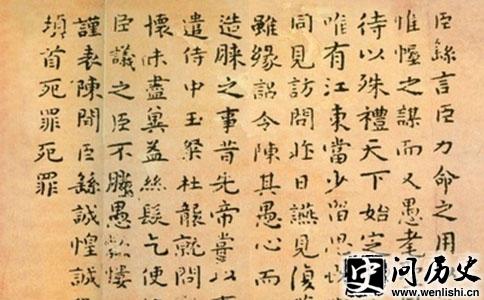 臣繇言臣力命之用
惟幄之謀而又愚耄
待以殊禮天下始定
唯有江東當少留思
同見訪問昨日讌見復
雖緣詔令陳其愚心而
造膝之事昔先帝嘗以事
遣侍中王粲杜襲就問
懷未盡奚益絲髮乞使
臣議之臣不勝愚款慺
謹表陳聞臣繇誠惶誠
頓首死罪死罪
问历史
www.wenlishi.cn